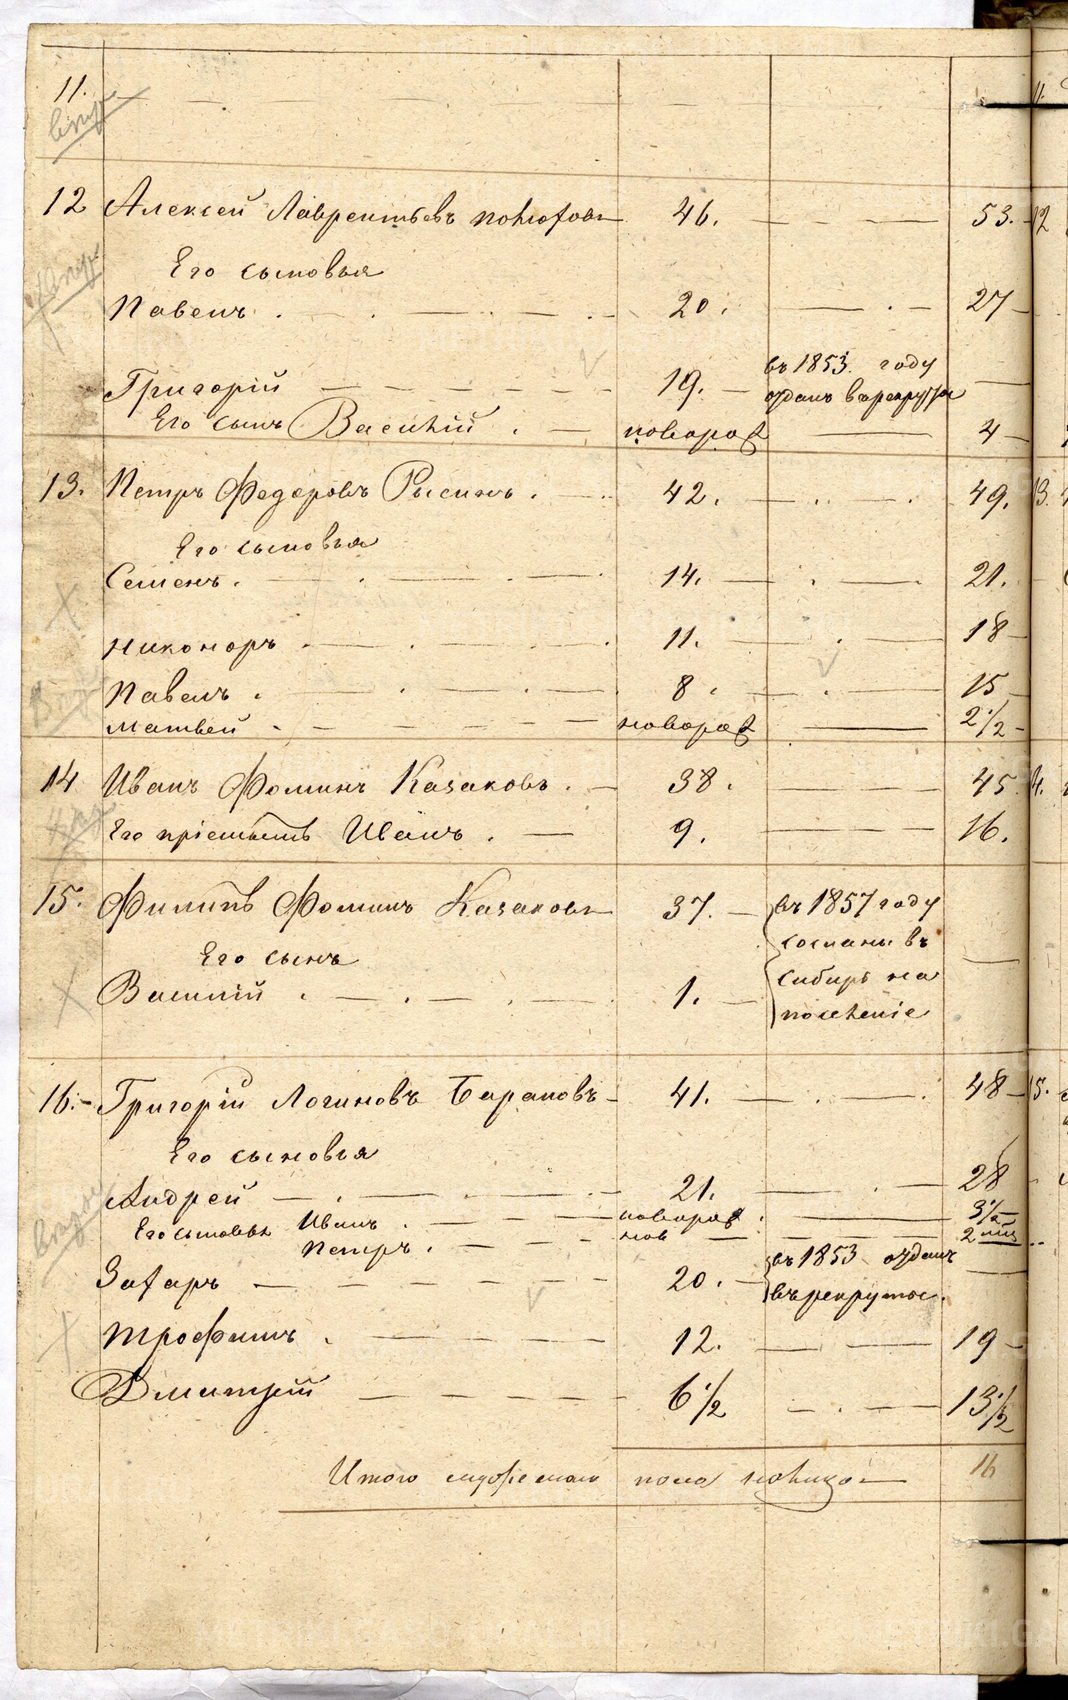 11.
12 Алексей Лаврентьевъ 46. 53.
Его сыновья
Павелъ 20. 27
Григорій 19. въ 1853 году отданъ в рекруты
Его сынъ Василій новорож 4
13. Петръ Федоровъ Рысинъ 42. 49.
Его сыновья
Семенъ 14. 21.
Никоноръ 11. 18
Павелъ 8. 15
Матвей новорож 2 1/2
14 Иванъ Фоминъ Казаковъ 38. 45
Его пріемышъ Иванъ 9. 16.
15. Филипъ Фоминъ Казаковъ 37. въ 1857 году
сосланы въ
Его сынъ
Сибирь на
Василій 1.
поселеніе
16. Григорій Логиновъ Барановъ 41. 48
Его сыновья
Андрей 21. 28
Его сыновья Иванъ новорож 3 1/2
Петръ нов 2 мц
Захаръ 20. въ 1853 отданъ
въ рекруты.
Трофимъ 12. 19
Дмитрій 6 1/2 13 1/2
Итого мужескаго пола 16